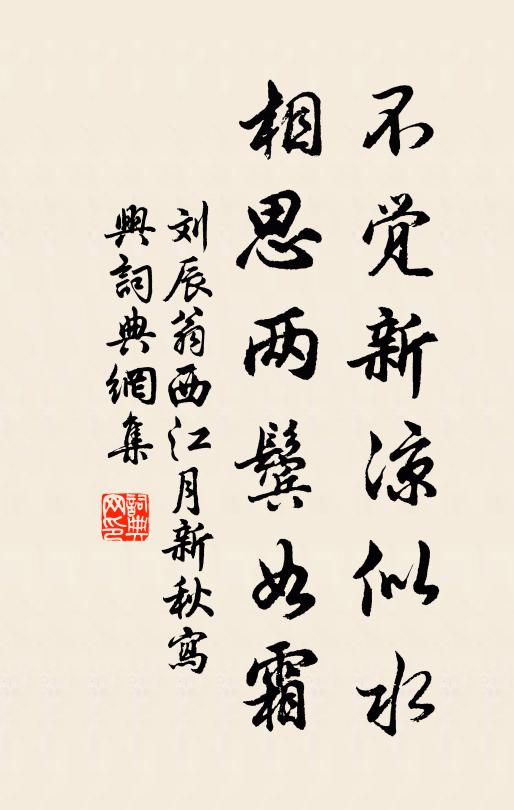 不觉新凉似水
相思两鬓如霜
刘辰翁西江月新秋寫
興詞典網集
詞典网印